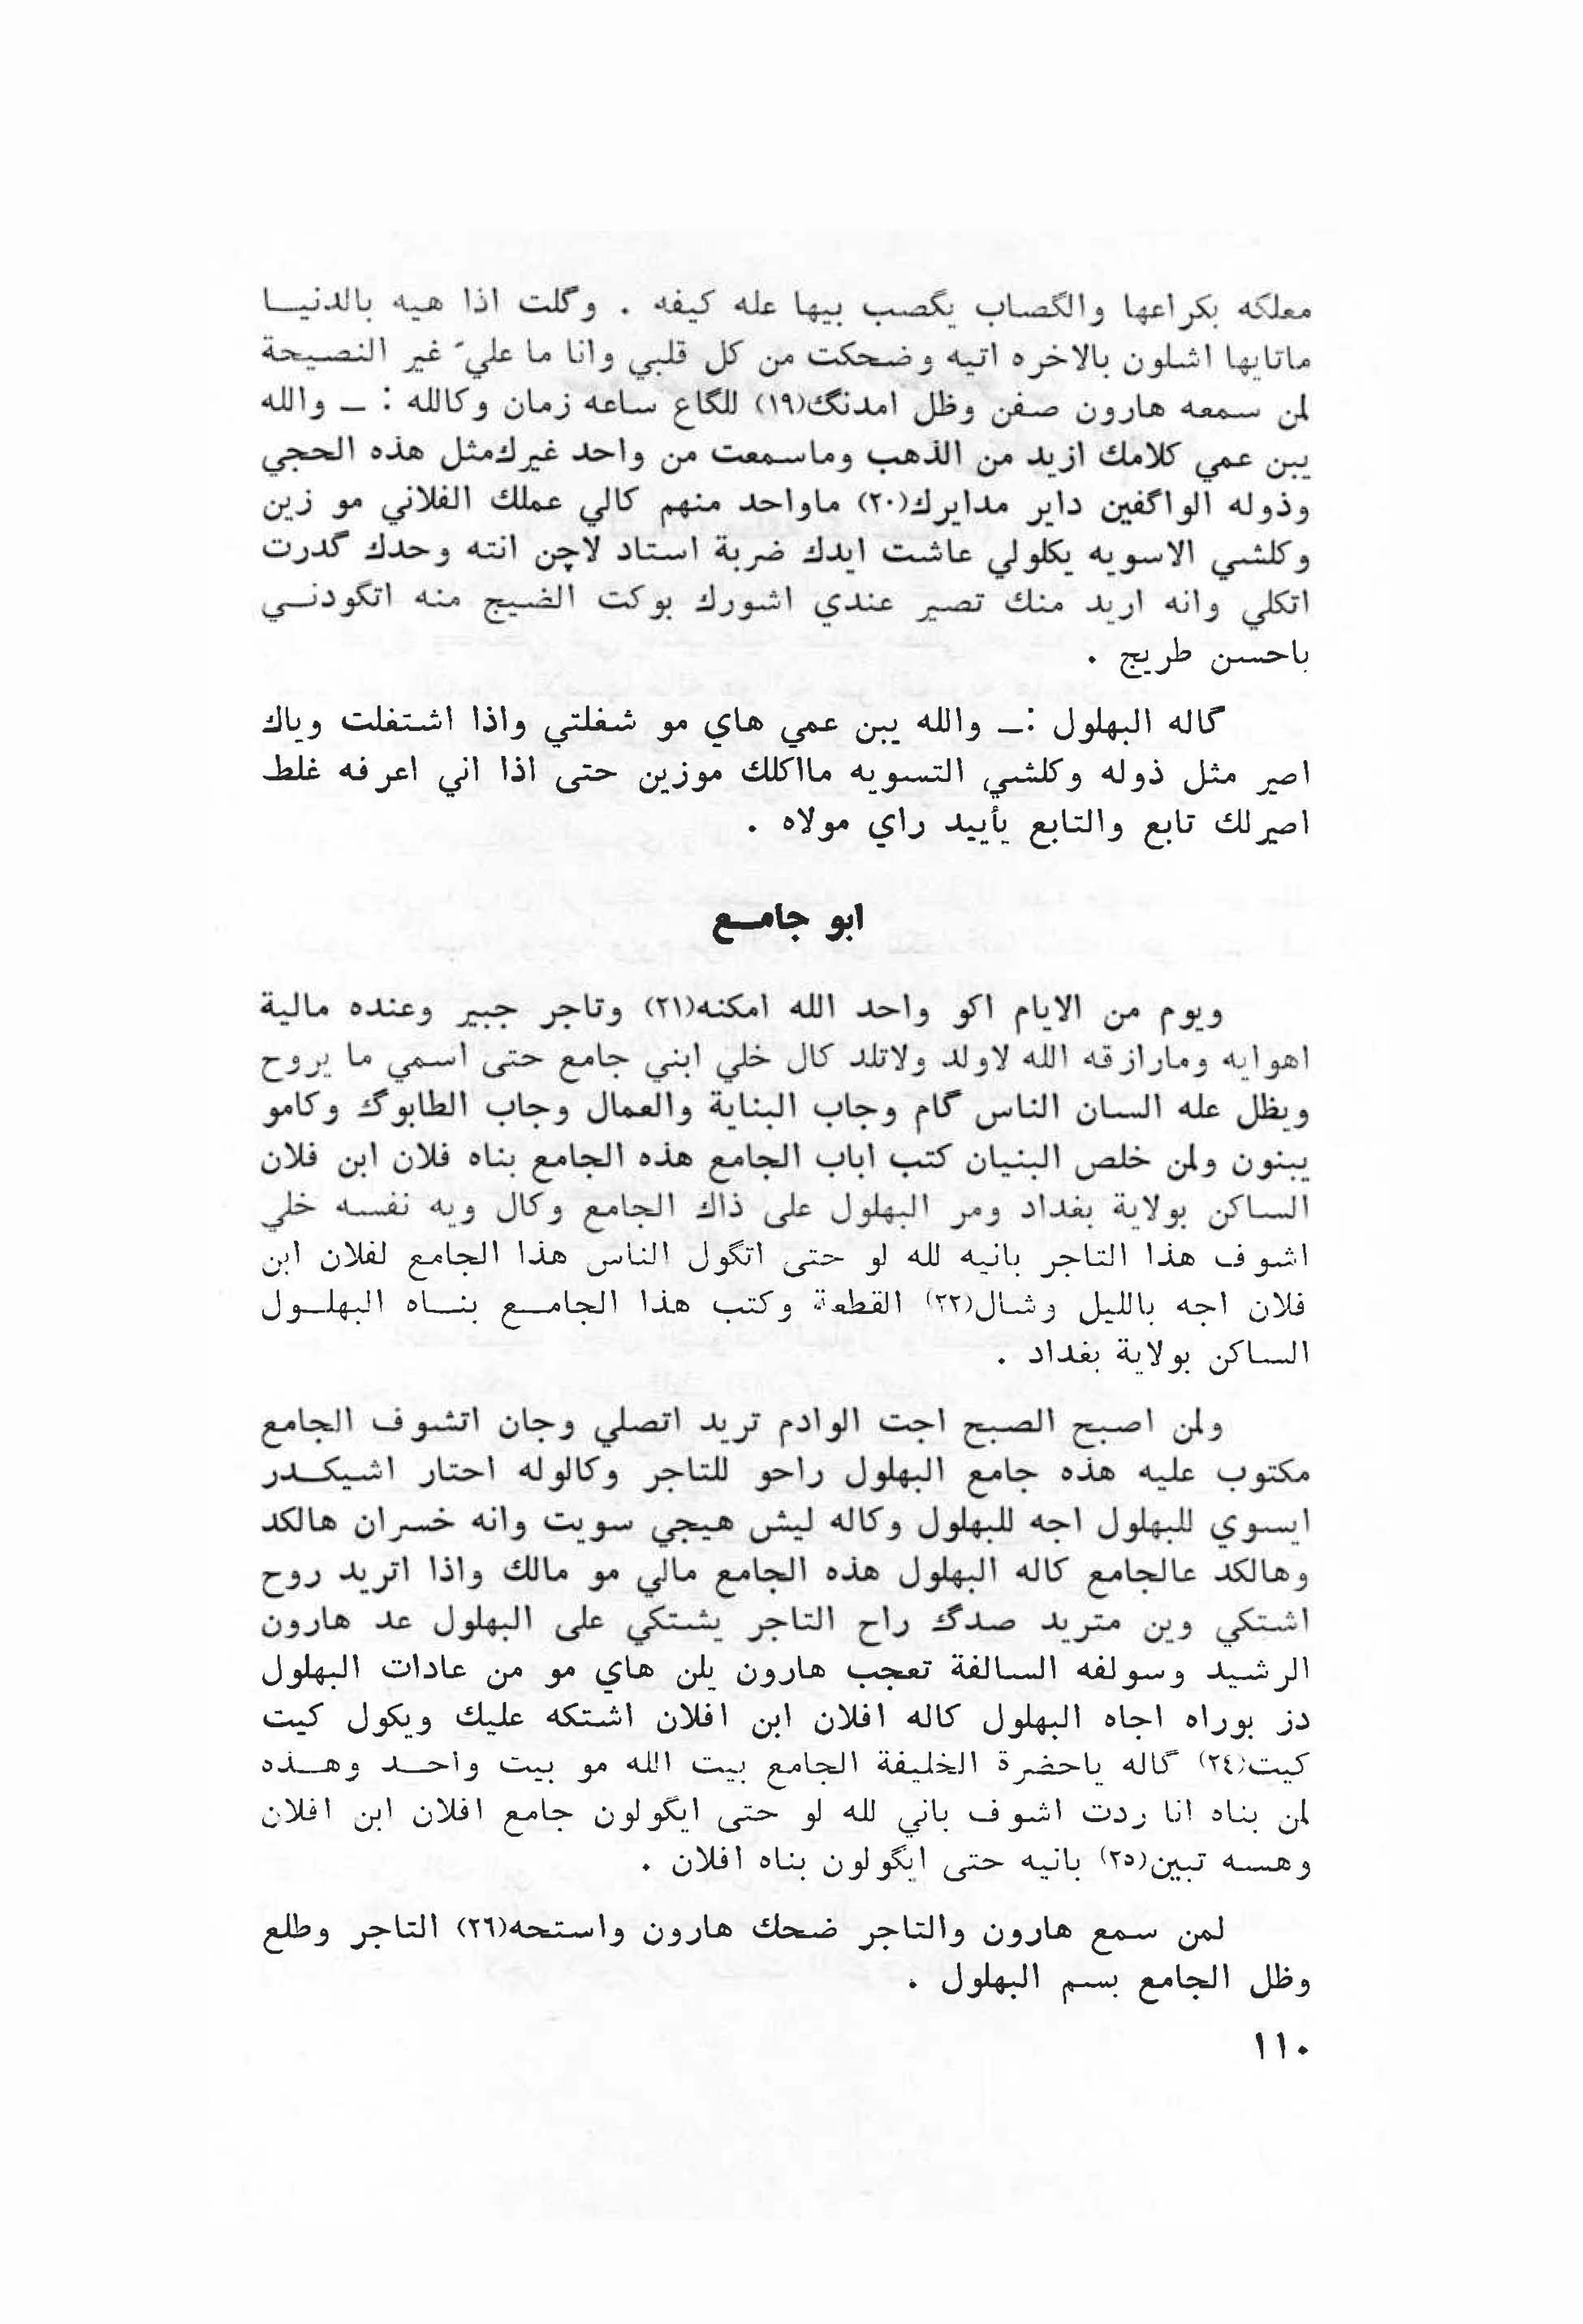 معلگه بكراعها والگصاب يگصب بيها عله كيفه . وگلت اذا هيه بالدنيـــا
ماتابها اشلون بالاخره اتيه وضحكت من كل قلبي وانا ما عليّ غير النصيحة
لمن سمعه هارون صفن وظل امدنگ(١٩) للگاع ساعه زمان وكالله : ــ والله
يبن عمي كلامك ازيد من الذهب وماسمعت من واحد غيرك مثل هذه الحجي
وذوله الواگفين داير مدايرك(٢٠) ماواحد منهم كالي عملك الفلاني مو زين
وكلشي الاسويه يكلولي عاشت ايدك ضربة استاد لاچن انته وحدك گدرت
اتكلي وانه اريد منك تصير عندي اشورك بوكت الضيج منه اتگودنــي
باحسن طريج .
گاله البهلول :ــ والله يبن عمي هاي مو شغلتي واذا اشتغلت وياك
اصير مثل ذوله وكلشي التسويه مااكلك موزين حتى اذا اني اعرفه غلط
اصيرلك تابع والتابع يأييد راي مولاه .
ابو جامــع
ويوم من الايام اكو واحد الله امكنه(٢١) وتاجر جبير وعنده مالية
اهوايه ومارازقه الله لاولد ولاتلد كال خلي ابني جامع حتى اسمي ما يروح
ويظل عله السان الناس گام وجاب البناية والعمال وجاب الطابوگ وكامو
يبنون ولمن خلص البنيان كتب اباب الجامع هذه الجامع بناه فلان ابن فلان
الساكن بولاية بغداد ومر البهلول على ذاك الجامع وكال ويه نفسه خلي
اشوف هذا التاجر بانيه لله لو حتى اتگول الناس هذا الجامع لفلان ابن
فلان اجه بالليل وشال(٢٢) القطعة وكتب هذا الجامــع بنــاه البهلــول
الساكن بولاية بغداد .
ولمن اصبح الصبح اجت الوادم تريد اتصلي وجان اتشوف الجامع
مكتوب عليه هذه جامع البهلول راحو للتاجر وكالوله احتار اشيكــدر
ايسوي للبهلول اجه للبهلول وكاله ليش هيجي سويت وانه خسران هالكد
وهالكد عالجامع كاله البهلول هذه الجامع مالي مو مالك واذا اتريد روح
اشتكي وين متريد صدگ راح التاجر يشتكي على البهلول عد هارون
الرشيد وسولفه السالفة تعجب هارون يلن هاي مو من عادات البهلول
دز بوراه اجاه البهلول كاله افلان ابن افلان اشتكه عليك ويكول كيت
كيت(٢٤) گاله ياحضرة الخليفة الجامع بيت الله مو بيت واحــد وهــذه
لمن بناه انا ردت اشوف باني لله لو حتى ايگولون جامع افلان ابن افلان
وهسه تبين(٢٥) بانيه حتى ايگولون بناه افلان .
لمن سمع هارون والتاجر ضحك هارون واستحه(٢٦) التاجر وطلع
وظل الجامع بسم البهلول .
١١٠